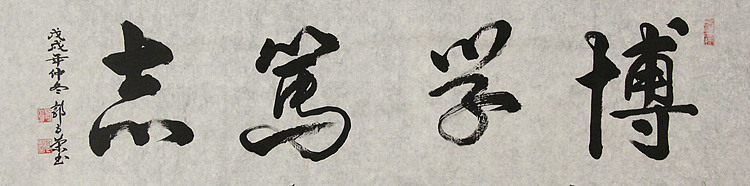 博学笃志
戊戌年仲冬
郭